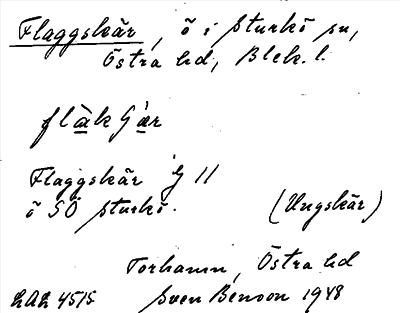 Flaggskär, ö i Sturkö sn,
Östra hd, Blek. l.
Flaggskär G 11
ö SÖ Sturkö. (Ungskär)
Torhamn, Östra hd
LAL 4515 Sven Benson 1948